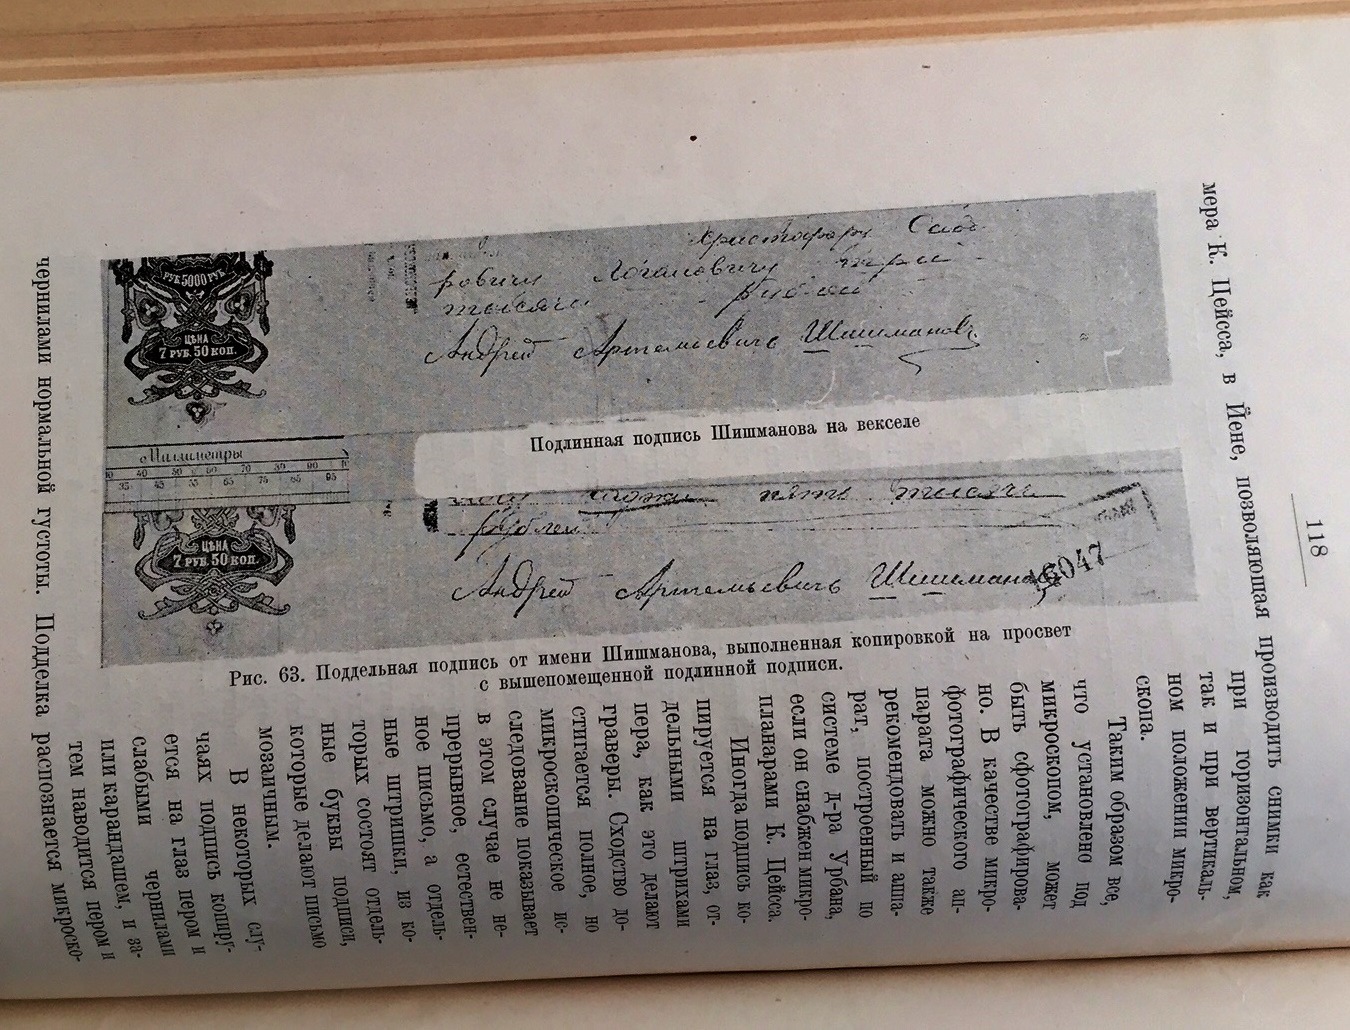 118
мера К. Цейсса, в Йене, позволяющая производить снимки как
при горизонтальном,
так и при вертикаль-
ном положении микро-
скопа.
Таким образом все,
что установлено под
микроскопом, может
быть сфотографирова-
но. В качестве микро-
фотографического ап-
парата можно также
рекомендовать и аппа-
рат, построенный по
системе д-ра Урбана,
если он снабжен микро-
планарами К. Цейсса.
Иногда подпись ко-
пируется на глаз, от-
дельными штрихами
пера, как это делают
граверы. Сходство до-
стигается полное, но
микроскопическое ис-
следование показывает
в этом случае не не-
прерывное, естествен-
ное письмо, а отдель-
ные штришки, из ко-
торых состоят отдель-
ные буквы подписи,
которые делают письмо
мозаичным.
В некоторых слу-
чаях подпись копиру-
ется на глаз пером и
слабыми чернилами
или карандашем, и за-
тем наводится пером и
чернилами нормальной густоты. Подделка распознается микроско-
РУБ 5000 РУБ.
ЦѢНА
7 РУБ. 50 КОП.
Христофору
ровичу три
тысячи рублей
Андрей Артемьевичъ Шишмановъ
Подлинная подпись Шишманова на векселе
Миллиметры
40 50 60 70 80 90
35 45 55 65 75 85 95
ЦѢНА
7 РУБ. 50 КОП.
пять тысячъ
рублей
Андрей Артемьевичъ Шишмановъ
16047
Рис. 63. Поддельная подпись от имени Шишманова, выполненная копировкой на просвет
с вышепомещенной подлинной подписи.